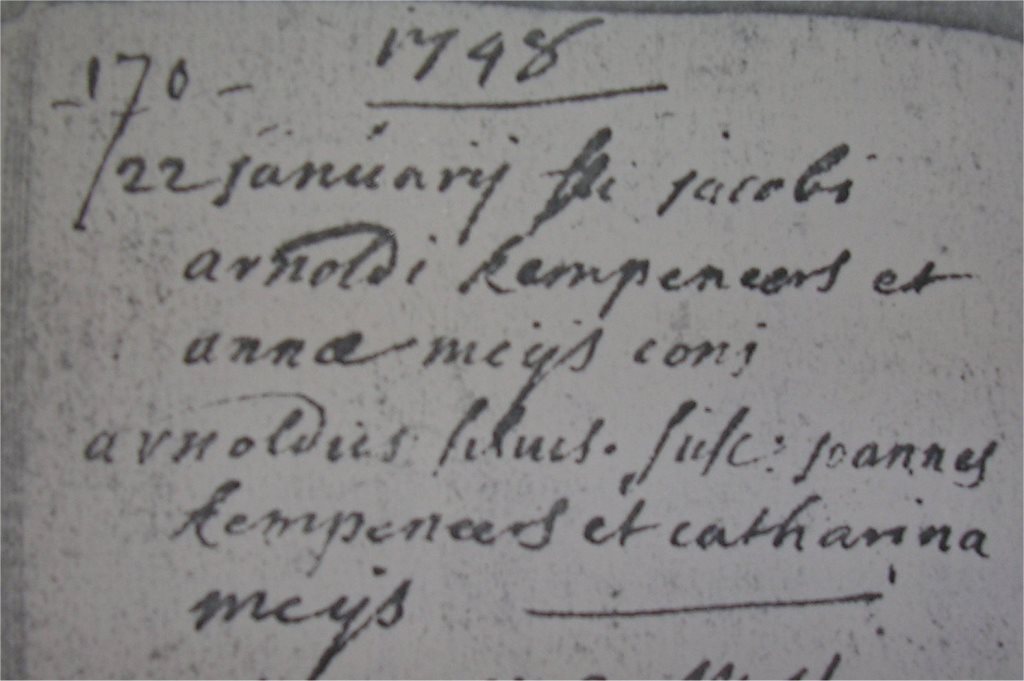 1748
-170-
22 januarij jacobi
arnoldi kempeneers et
annæ meijs conj
arnoldus filius. susc: joannes
kempeneers et catharina
meijs